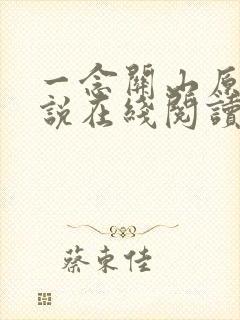 一念關山原
說在綫閱讀
蔡東佳